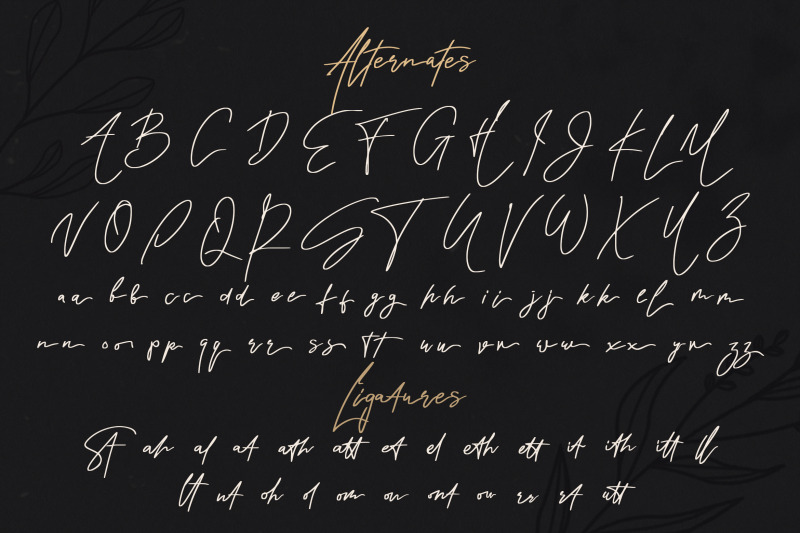 Alternates
A B C D E F G H I J K L M
N O P Q R S T U V W X Y Z
aa bb cc dd ee ff gg hh ii jj kk ll mm
nn oo pp qq rr ss tt uu vv ww xx yy zz
Ligatures
St ah al at ath att et el eth ett it ith itt ll
lt nt oh ol om on ont ou rs rt utt